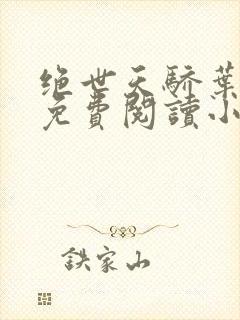 绝世天骄葉
免費閱讀小
鉄家山